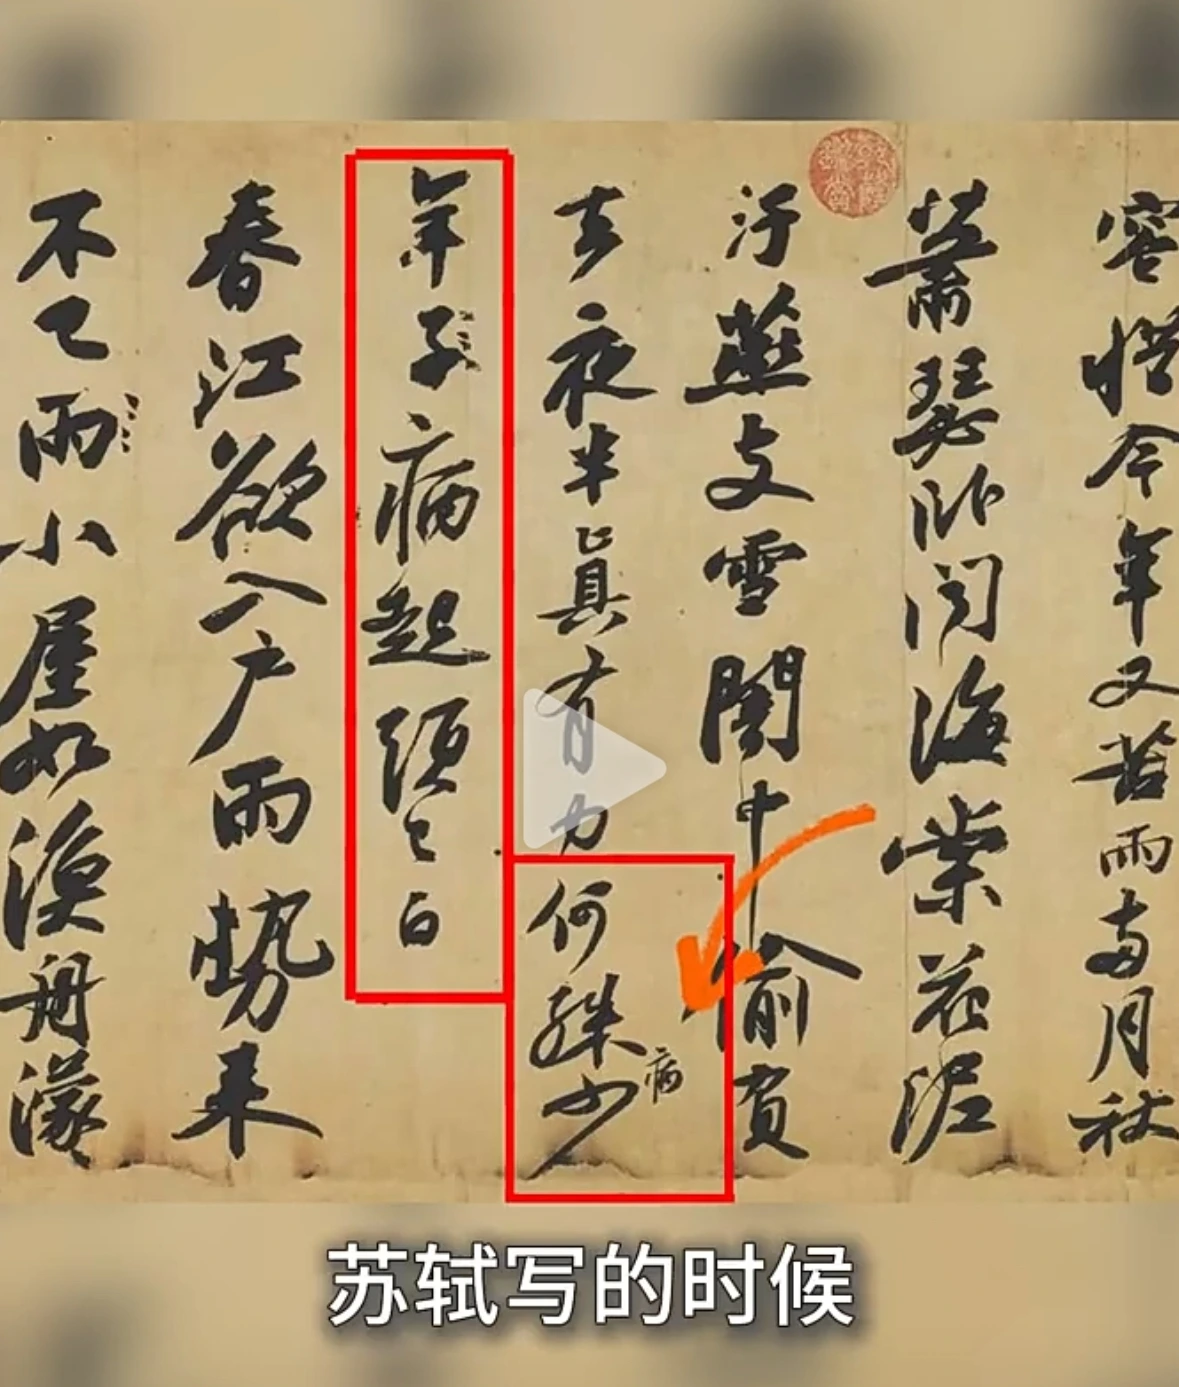 容惜今年又苦雨兩月秋
蕭瑟臥聞海棠花泥
汙燕支雪闇中偷負
去夜半真有力何殊少
病
年子病起頭已白
春江欲入戶雨勢来
不已雨小屋如漁舟濛
苏轼写的时候